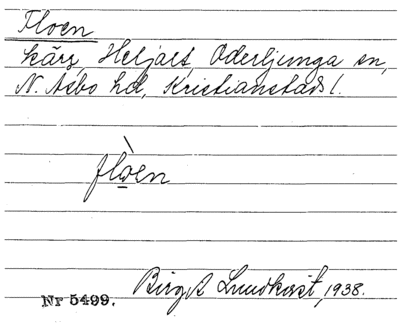 Floen
kärr, Heljalt, Oderljunga sn,
N. Åsbo hd, Kristianstads l.
flòen
Birgit Lundkvist, 1938.
Nr 5499.